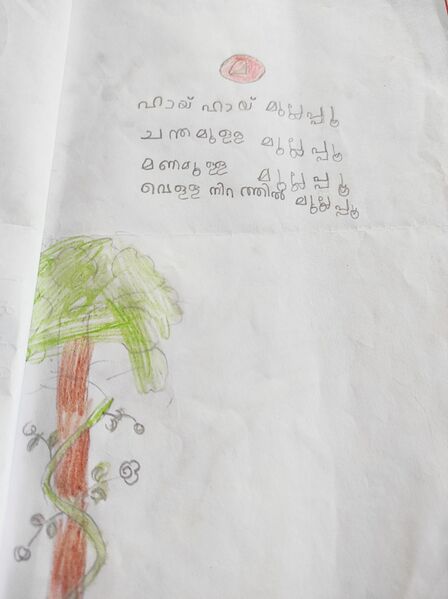 ഹായ് ഹായ് മുല്ലപ്പൂ
ചന്തമുള്ള മുല്ലപ്പൂ
മണമുള്ള മുല്ലപ്പൂ
വെള്ള നിറത്തിൽ മുല്ലപ്പൂ